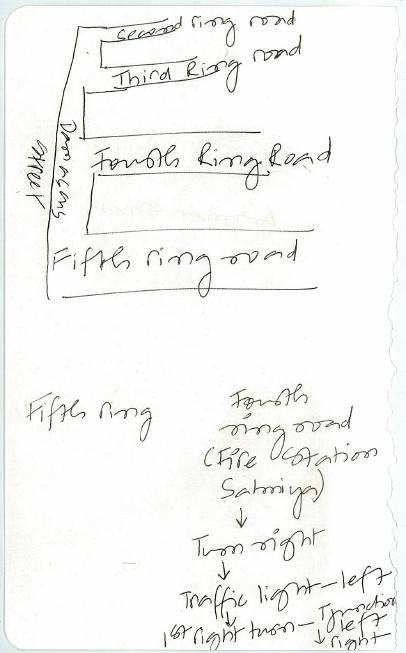 Second ring road
Third Ring road
Damascus
street
Fourth Ring Road
Fifth ring road
Fifth ring
Fourth
ring road
(Fire Station
Salmiya)
Turn right
Traffic light - left
1st right turn - T junction
left
right